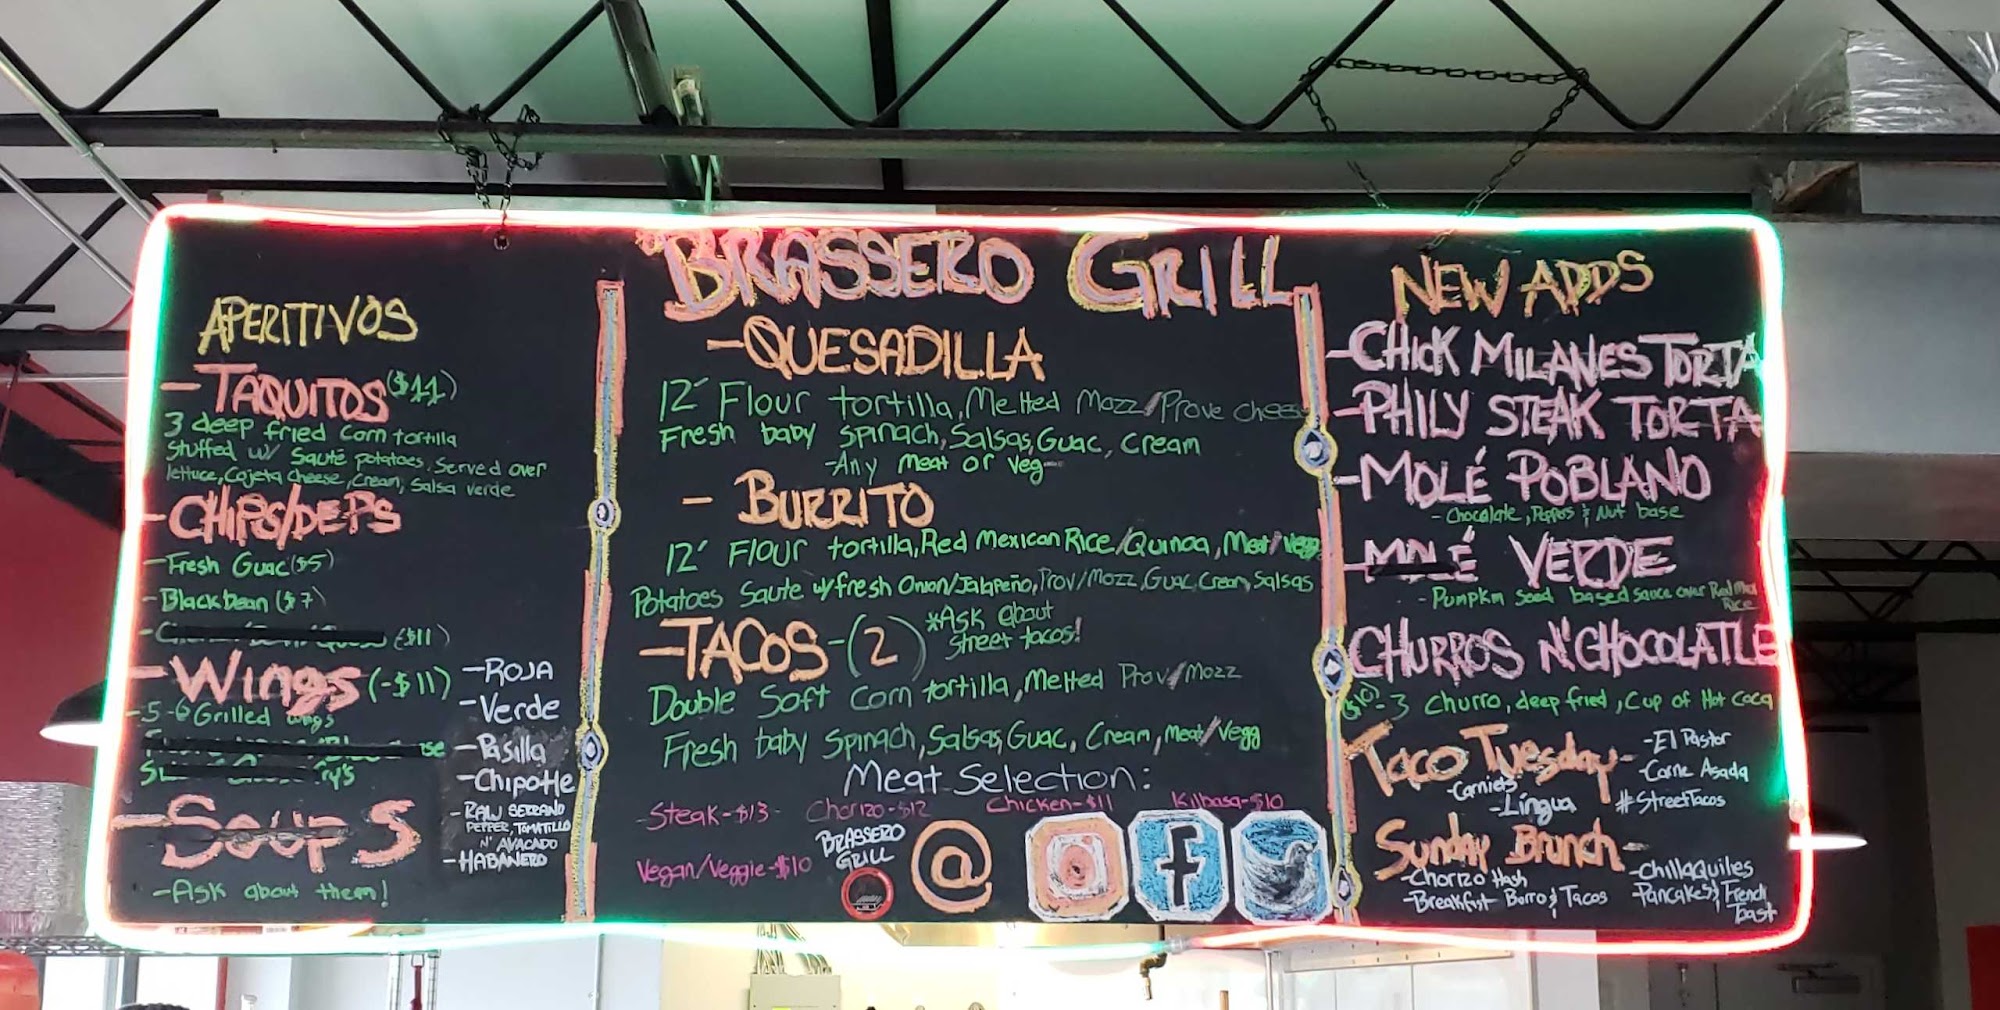 BRASSERO GRILL
APERITIVOS
- TAQUITOS ($11)
3 deep fried corn tortilla
Stuffed w/ Sauté potatoes, Served over
lettuce, Cojeta cheese, Cream, Salsa verde
- CHIPS/DEPS
- Fresh Guac ($5)
- Black bean ($7)
($11)
- Wings (-$11)
- 5-6 Grilled wings
- SOUPS
- Ask about them!
- ROJA
- Verde
- Pasilla
- Chipotle
- RAW SERRANO
PEPPER, TOMATILLO
N' AVACADO
- HABANERO
- QUESADILLA
12" Flour tortilla, Melted Mozz/Prove cheese
Fresh baby spinach, Salsas, Guac, cream
- Any meat or veg
- BURRITO
12" Flour tortilla, Red Mexican Rice/Quinoa, Meat/Vegg
Potatoes Saute w/fresh Onion/Jalapeño, Prov/Mozz, Guac, Cream, Salsas
- TACOS - (2) *Ask about
street tacos!
Double Soft Corn tortilla, Melted Prov/Mozz
Fresh baby spinach, Salsas, Guac, Cream, meat/vegg
Meat Selection:
- Steak - $13 Chorizo - $12 Chicken - $11 Kilbasa - $10
Vegan/Veggie - $10
BRASSERO
GRILL
@
f
NEW ADDS
- CHICK MILANES TORTA
- PHILY STEAK TORTA
- MOLÉ POBLANO
- Chocolate, Peppos & Nut base
- MOLÉ VERDE
- Pumpkin seed based sauce over Red Mex
Rice
CHURROS N' CHOCOLATLE
($10) - 3 Churro, deep fried, Cup of Hot Coca
Taco Tuesday -
- El Pastor
- Carne Asada
- Carniets
- Lingua
#StreetTacos
Sunday Brunch -
- Chorizo Hash
- Breakfast Borro & Tacos
- Chillaquiles
- Pancakes & French
Toast